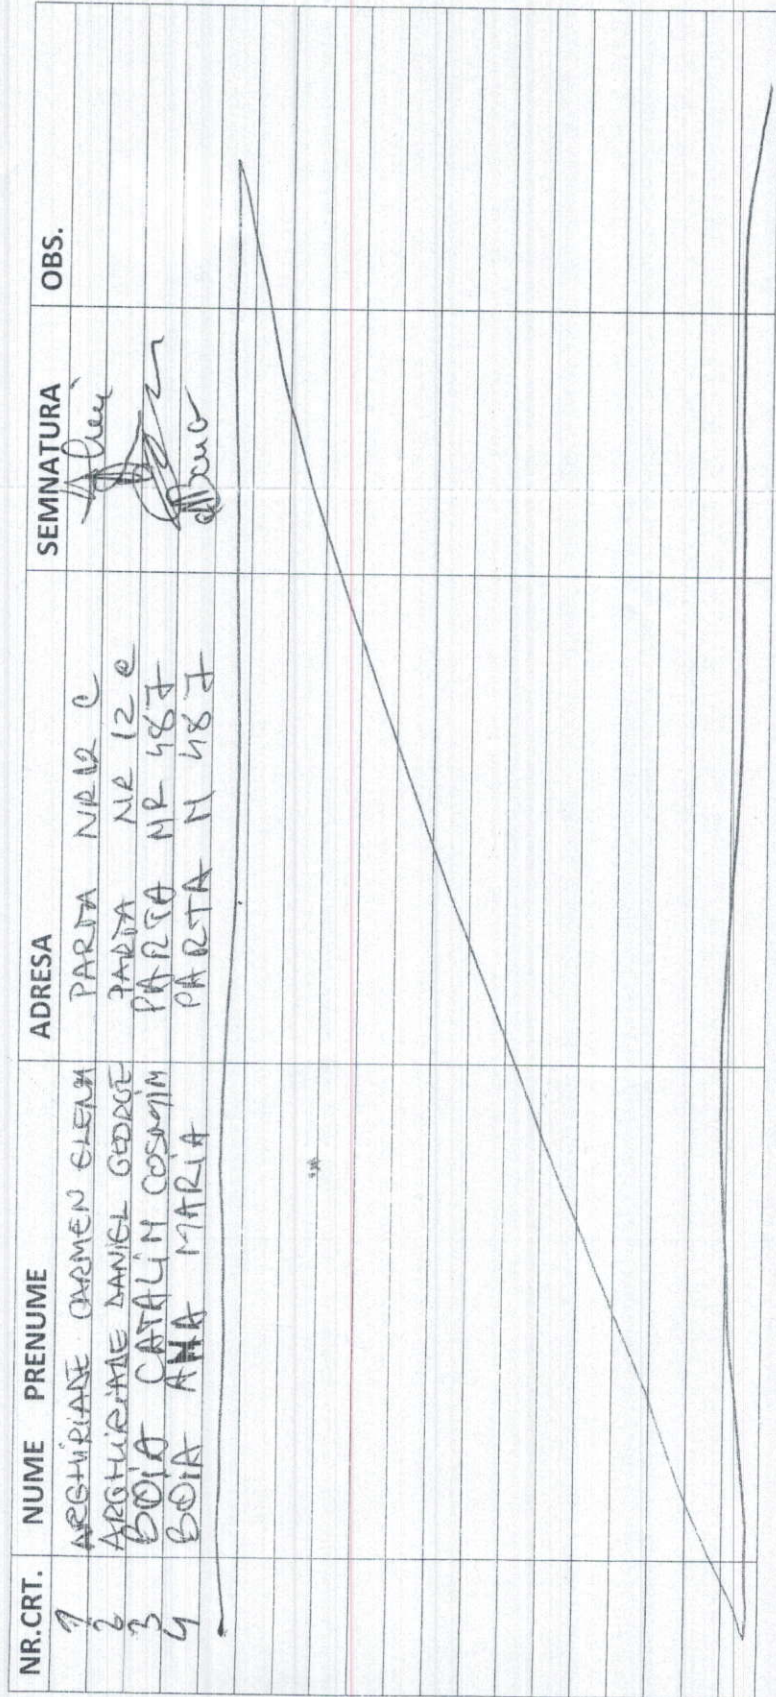 NR.CRT. NUME PRENUME ADRESA SEMNATURA OBS.
1 ARGHIRIADE CARMEN ELENA PARTA NR 12 C
2 ARGHIRIADE DANIEL GEORGE PARTA NR 12 C
3 BOIA CATALIN COSMIN PARTA NR 487
4 BOIA ANA MARIA PARTA N 487